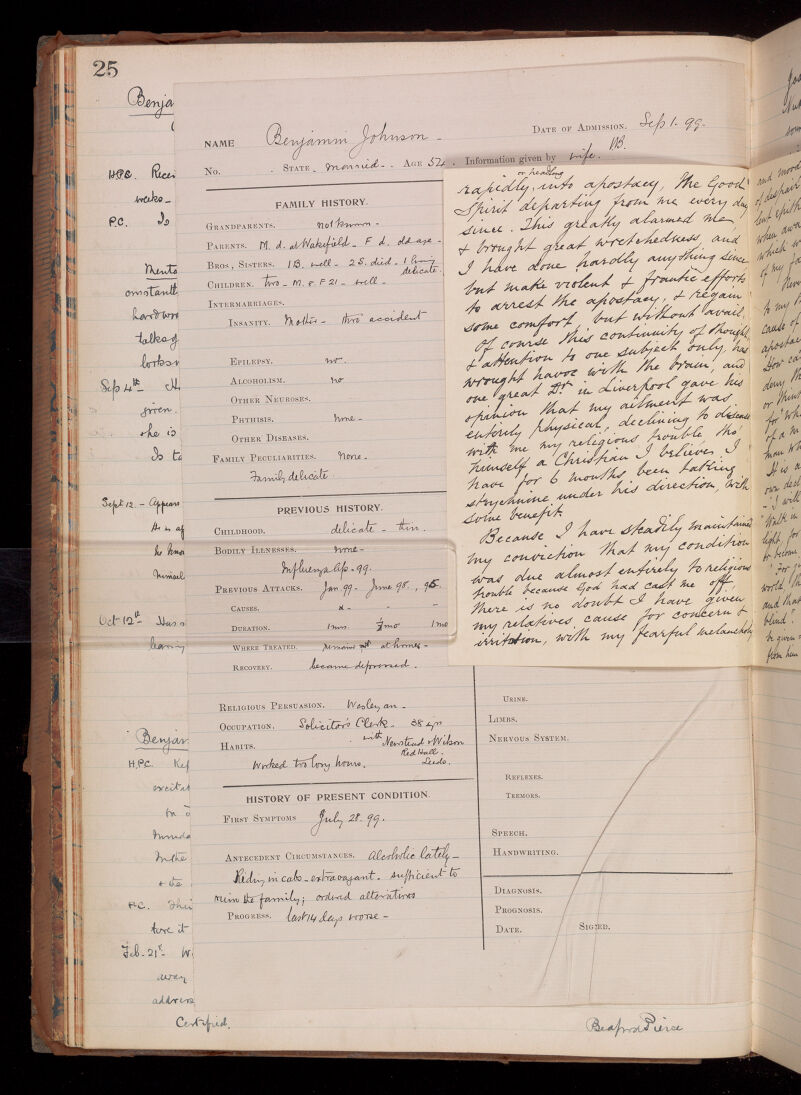 25
Benja
H.P.C. Recei
weeks -
P.C. Is
Menta
constantl
hard wor
talks of
looks
Sep 4th - H
given.
she is
Is to
Sept 12. - Appears
He is af
he know
himself
Oct 12th Has
Benjam
H.P.C.
excita
In the
& the
P.C.
tore it
Feb. 21st - W
away
address
Certified.
Bedford Pierce
NAME Benjamin Johnson -
DATE OF ADMISSION. Sep 1. 99.
No. STATE. married - AGE 54. Information given by wife. WB.
FAMILY HISTORY.
GRANDPARENTS. not known -
PARENTS. M. d. at Wakefield - F d. old age -
BROS., SISTERS. 1 B. well - 2 S. died - 1 living delicate.
CHILDREN. two - M. & F 21 - well -
INTERMARRIAGES.
INSANITY. Mother - thro accident
EPILEPSY. no.
ALCOHOLISM. no
OTHER NEUROSES.
PHTHISIS. none -
OTHER DISEASES.
FAMILY PECULIARITIES. None -
Family delicate.
PREVIOUS HISTORY.
CHILDHOOD. delicate - thin.
BODILY ILLNESSES. none -
Influenza Ap. 99.
PREVIOUS ATTACKS. Jan. 99 - June 98., 95.
CAUSES.
DURATION. 1 mo
WHERE TREATED. at home -
RECOVERY. became depressed.
RELIGIOUS PERSUASION. Wesleyan -
OCCUPATION. Solicitor's Clerk - 38 yrs
with Newstead & Wilson
Red Hall.
Leeds.
HABITS.
Worked too long hours.
HISTORY OF PRESENT CONDITION.
FIRST SYMPTOMS July 28. 99.
ANTECEDENT CIRCUMSTANCES. Alcoholic lately -
Riding in cabs - extravagant - sufficient to
ruin the family; ordered alteratives
PROGRESS. last 14 days worse -
or heading
rapidly, into apostacy, the Good
Spirit departing from me every day
since. This greatly alarmed me
& brought great wretchedness, and
I have done hardly anything since
but make violent & frantic efforts
to arrest the apostacy, & regain
some comfort, but without avail.
Of course this continuity of thought
& attention to one subject only, has
wrought havoc with the brain, and
one great Dr. in Liverpool gave his
opinion that my ailment was
entirely physical, declining to discuss
with me my religious trouble tho'
himself a Christian I believe. I
have for 6 months, been taking
strychnine under his direction, with
some benefit.
Because I have steadily maintained
my conviction that my condition
was due almost entirely to religious
trouble because God had cast me off,
there is no doubt I have given
my relatives cause for concern &
irritation, with my fearful melancholy
and mood
of despair
but
when
which
of my
to my
cause of
aposta
How ca
deny th
or thin
for wh
of a m
man wh
It is a
own
"I will
Walk in
light, for
or become
"For
world, th
and that
blind".
be given
from him
URINE.
LIMBS.
NERVOUS SYSTEM.
REFLEXES.
TREMORS.
SPEECH.
HANDWRITING.
DIAGNOSIS.
PROGNOSIS.
DATE. SIGNED.